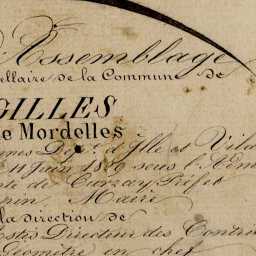 Assemblage
ellaire de la Commune de
GILLES
e Mordelles
Dep.t d'Ille et Vila
11 Juin 18 9 sous l'Adm
te de Curzay, Préfet
nin, Maire
a direction de
Directeur des Contri
Géomètre en chef